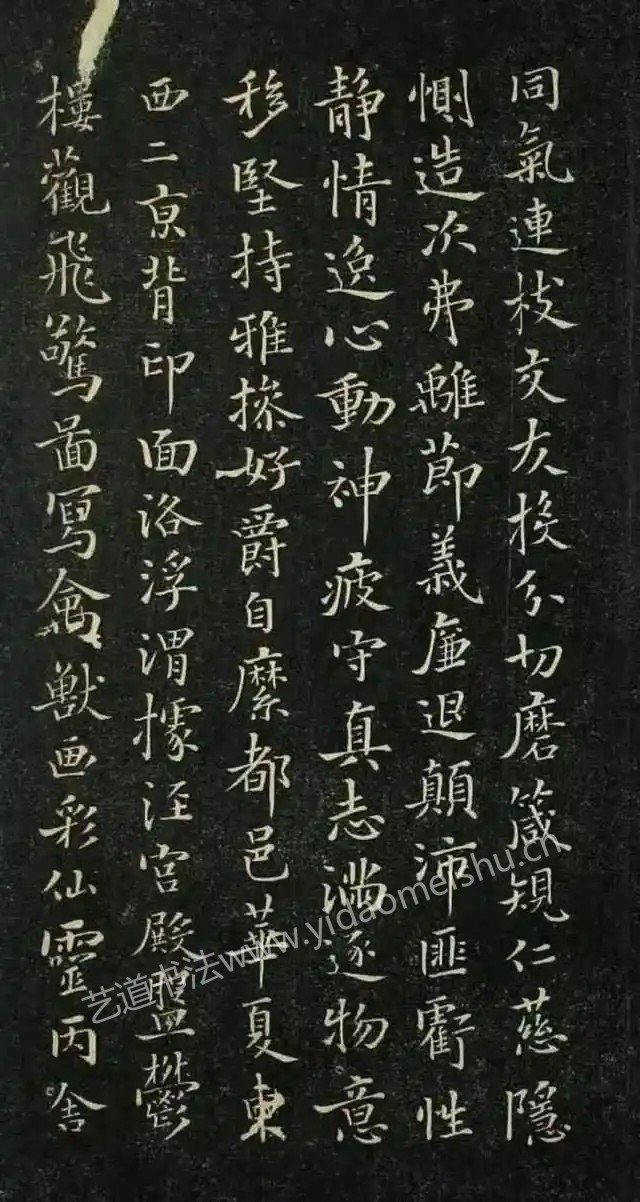 同氣連枝交友投分切磨箴規仁慈隱
惻造次弗離節義廉退顛沛匪虧性
靜情逸心動神疲守真志滿逐物意
移堅持雅操好爵自縻都邑華夏東
西二京背邙面洛浮渭據涇宮殿盤鬱
樓觀飛驚圖寫禽獸画彩仙靈丙舍
艺道书法www.yidaomeishu.cn